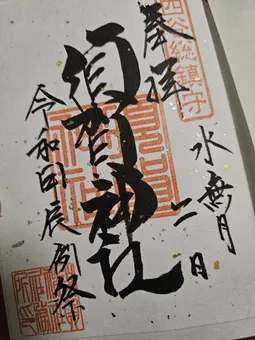 四谷総鎮守
奉拝
水無月二日
須賀神社
令和甲辰例祭